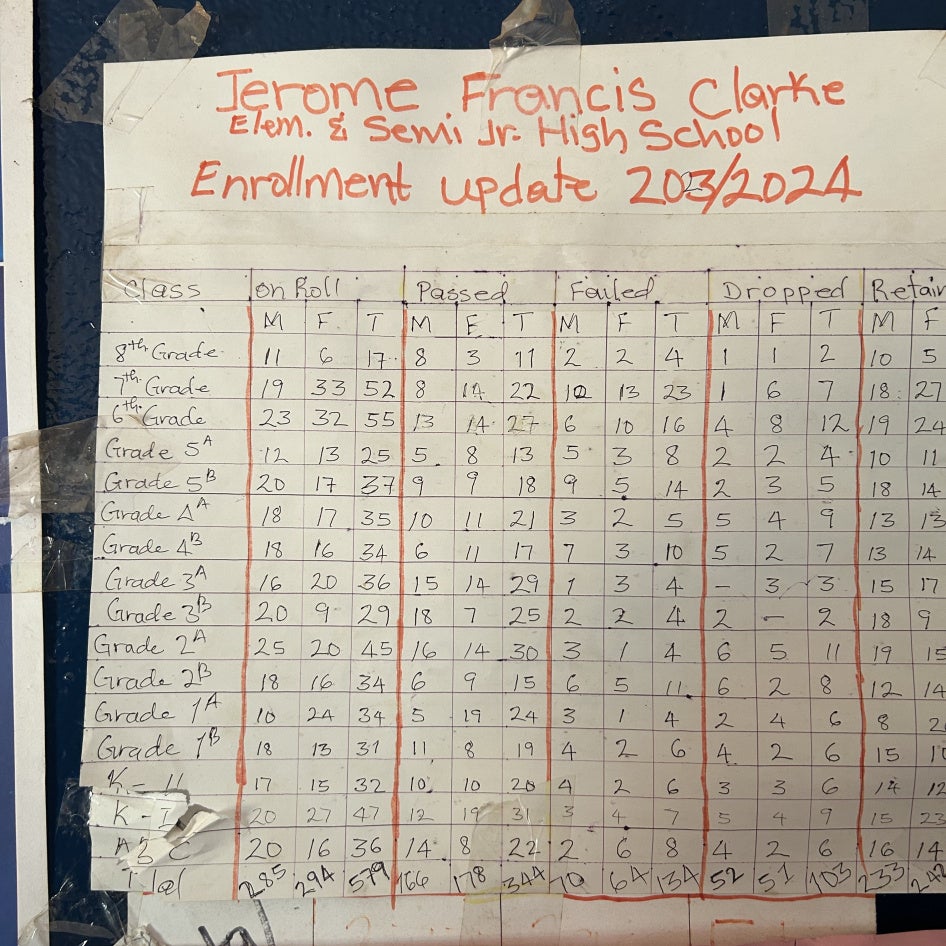 Jerome Francis Clarke
Elem. & Semi Jr. High School
Enrollment update 2023/2024
Class On Roll Passed Failed Dropped Retain
M F T M F T M F T M F T M F
8th Grade 11 6 17 8 3 11 2 2 4 1 1 2 10 5
7th Grade 19 33 52 8 14 22 10 13 23 1 6 7 18 27
6th Grade 23 32 55 13 14 27 6 10 16 4 8 12 19 24
Grade 5A 12 13 25 5 8 13 5 3 8 2 2 4 10 11
Grade 5B 20 17 37 9 9 18 9 5 14 2 3 5 18 14
Grade 4A 18 17 35 10 11 21 3 2 5 5 4 9 13 13
Grade 4B 18 16 34 6 11 17 7 3 10 5 2 7 13 14
Grade 3A 16 20 36 15 14 29 1 3 4 - 3 3 15 17
Grade 3B 20 9 29 18 7 25 2 2 4 2 - 2 18 9
Grade 2A 25 20 45 16 14 30 3 1 4 6 5 11 19 15
Grade 2B 18 16 34 6 9 15 6 5 11 6 2 8 12 14
Grade 1A 10 24 34 5 19 24 3 1 4 2 4 6 8
Grade 1B 18 13 31 11 8 19 4 2 6 4 2 6 15
K-II 17 15 32 10 10 20 4 2 6 3 3 6 14 12
K-I 20 27 47 12 19 31 3 4 7 5 4 9 15 23
ABC 20 16 36 14 8 22 2 6 8 4 2 6 16 14
Total 285 294 579 166 178 344 70 64 134 52 51 103 233